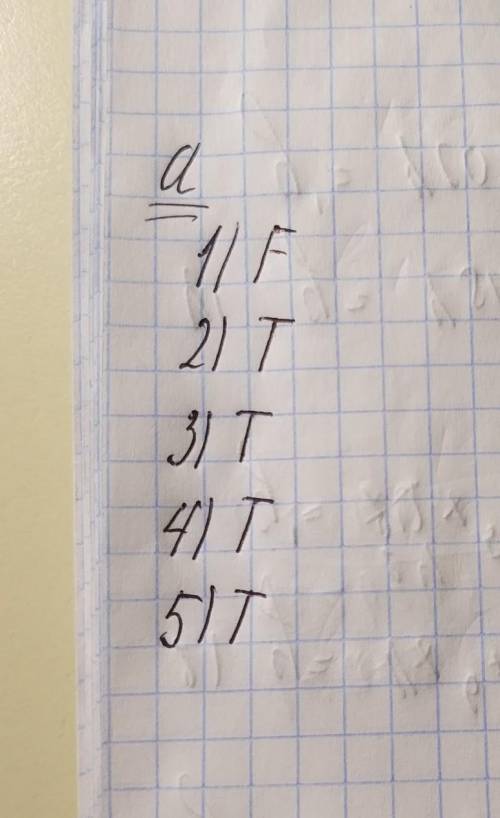 a
1) F
2) T
3) T
4) T
5) T